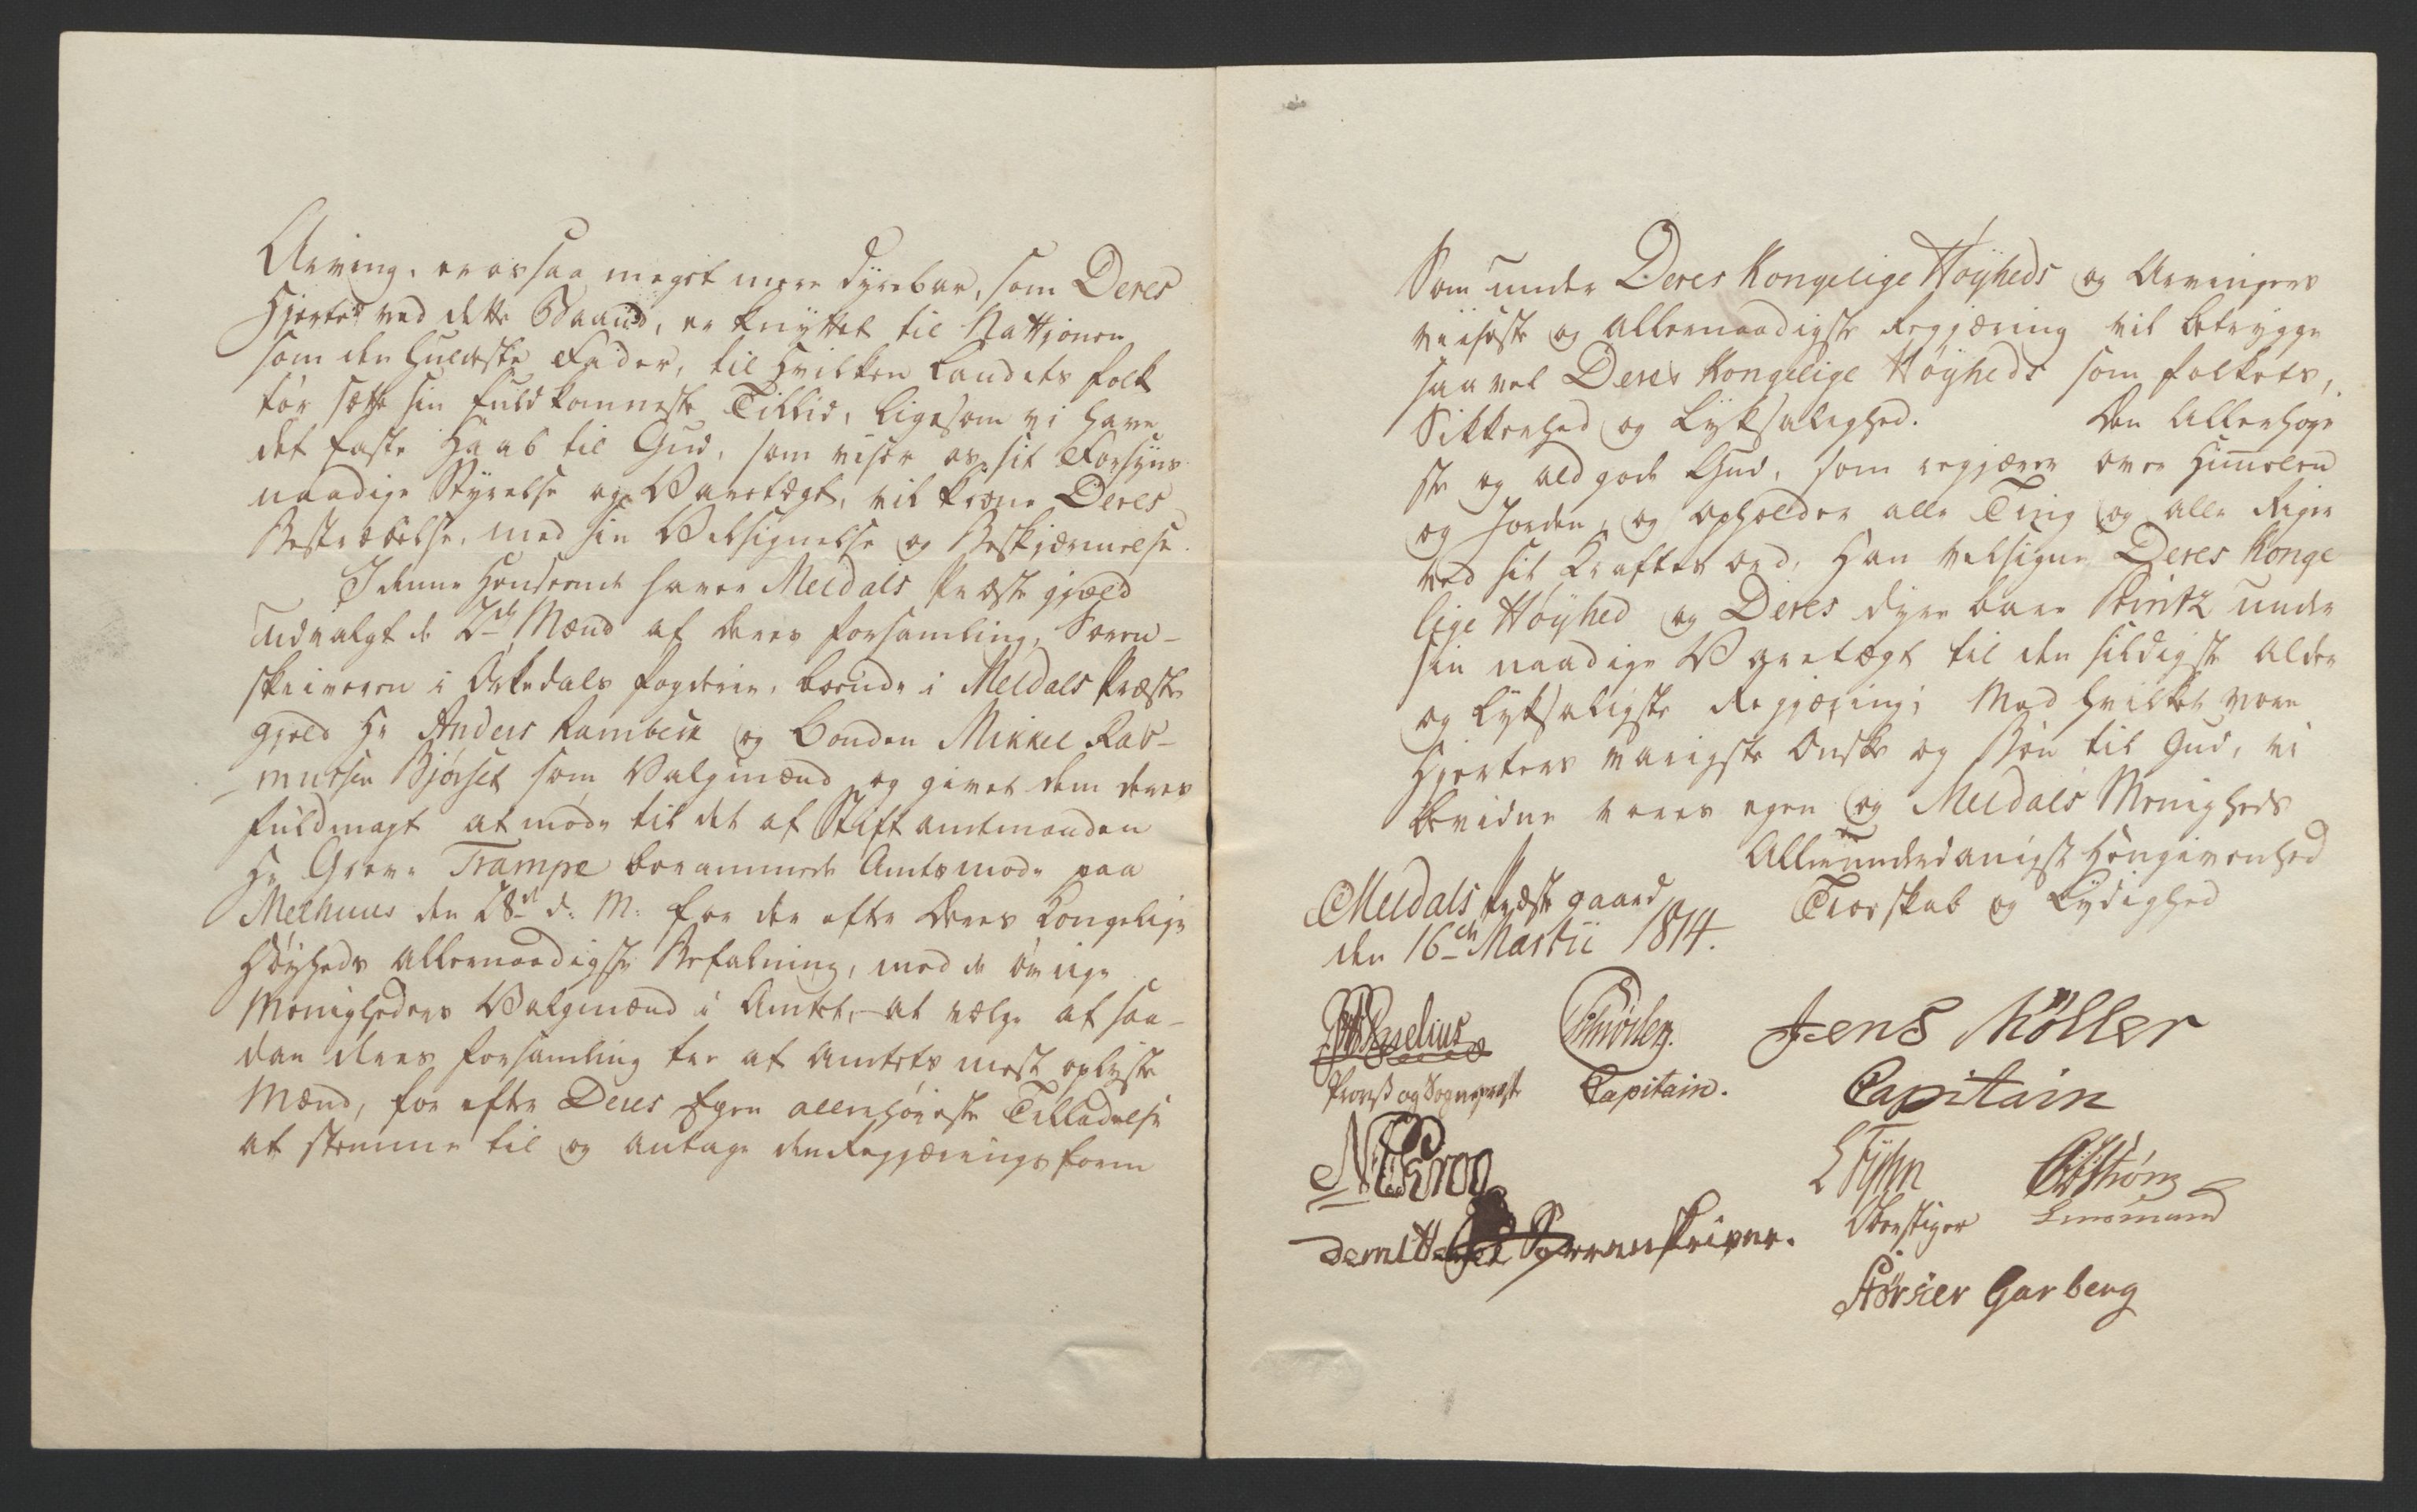 Arving, er os saa meget mere dyrebar, som Deres
Hjerte ved dette Baand, er knyttet til Nattjonen
som den huldeste Fader, til hvilken Landets folk
tør sætte sin fuldkomneste Tillid, ligesom vi have
det faste Haab til Gud, som viser os sit Forsyns
naadige Styrelse og Varetægt, vil krone Deres
Bestræbelse, med sin Velsignelse og Beskjærmelse.
I denne Henseende haver Meldals Præste gjæld
udvalgt de 2de Mænd af deres forsamling, Soren-
skriveren i Orkedals fogderie, boende i Meldals Præste
gjeld Hr Anders Rambech og Bonden Mikkel Ras-
-mussen Bjørset som Valgmænd og givet dem deres
fuldmagt at møde til det af Stiftamtmanden
Hr Greve Trampe berammede Amtsmøde paa
Melhuus den 28de d: M: for der efter Deres Kongelige
Høyheds allernaadigste Befalning, med de øvrige
Menigheders Valgmænd i Amtet, at vælge af saa-
dan deres forsamling tre af Amtets mest oplyste
Mænd, for efter Deres Egen allerhøieste Tilladelse
at stemme til og antage den Regjærings form
Som under Deres Kongelige Høyheds og Arvingers
viiseste og allernaadigste Regjæring vil betrygge
saavel Deres Kongelige Høyheds som folkets,
Sikkerhed og Lyksalighed. Den Allerhøye
ste og algode Gud, som regjærer over Himelen
og Jorden, og opholder alle Ting og alle Riger
ved sit Kraftes ord, Han velsigne Deres Konge
lige Høyhed og Deres dyrebare Printz under
sin naadige Varetægt til den sildigste Alder
og lyksaligste Regjæring; Med hvilket vore
Hjerters varigste Ønske og Bøn til Gud, vi
bevidne vores egen og Meldals Menigheds
Allerunderdanigst Hengivenhed
Troeskab og Lydighed
Meldals Præste gaard
den 16de Martii 1814.
Jens Möller
Capitain
Capitain.
Provst og Sognepræst
N Krog
Sorenskriver.
Fyhn
Oberstiger
Strøm
Lensmand
Størker Garberg